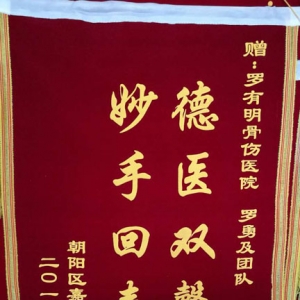 赠：罗有明骨伤医院 罗勇及团队
德医双馨
妙手回春
朝阳区
二〇一